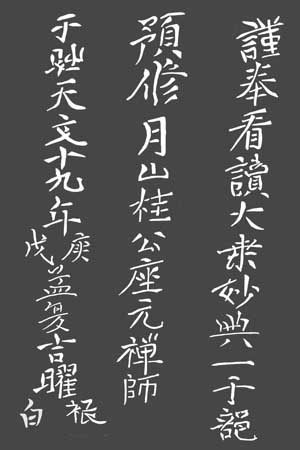 謹奉看讀大乗妙典一千部
預修月山桂公座元禅師
于時天文十九年庚戌孟夏吉曜祗白